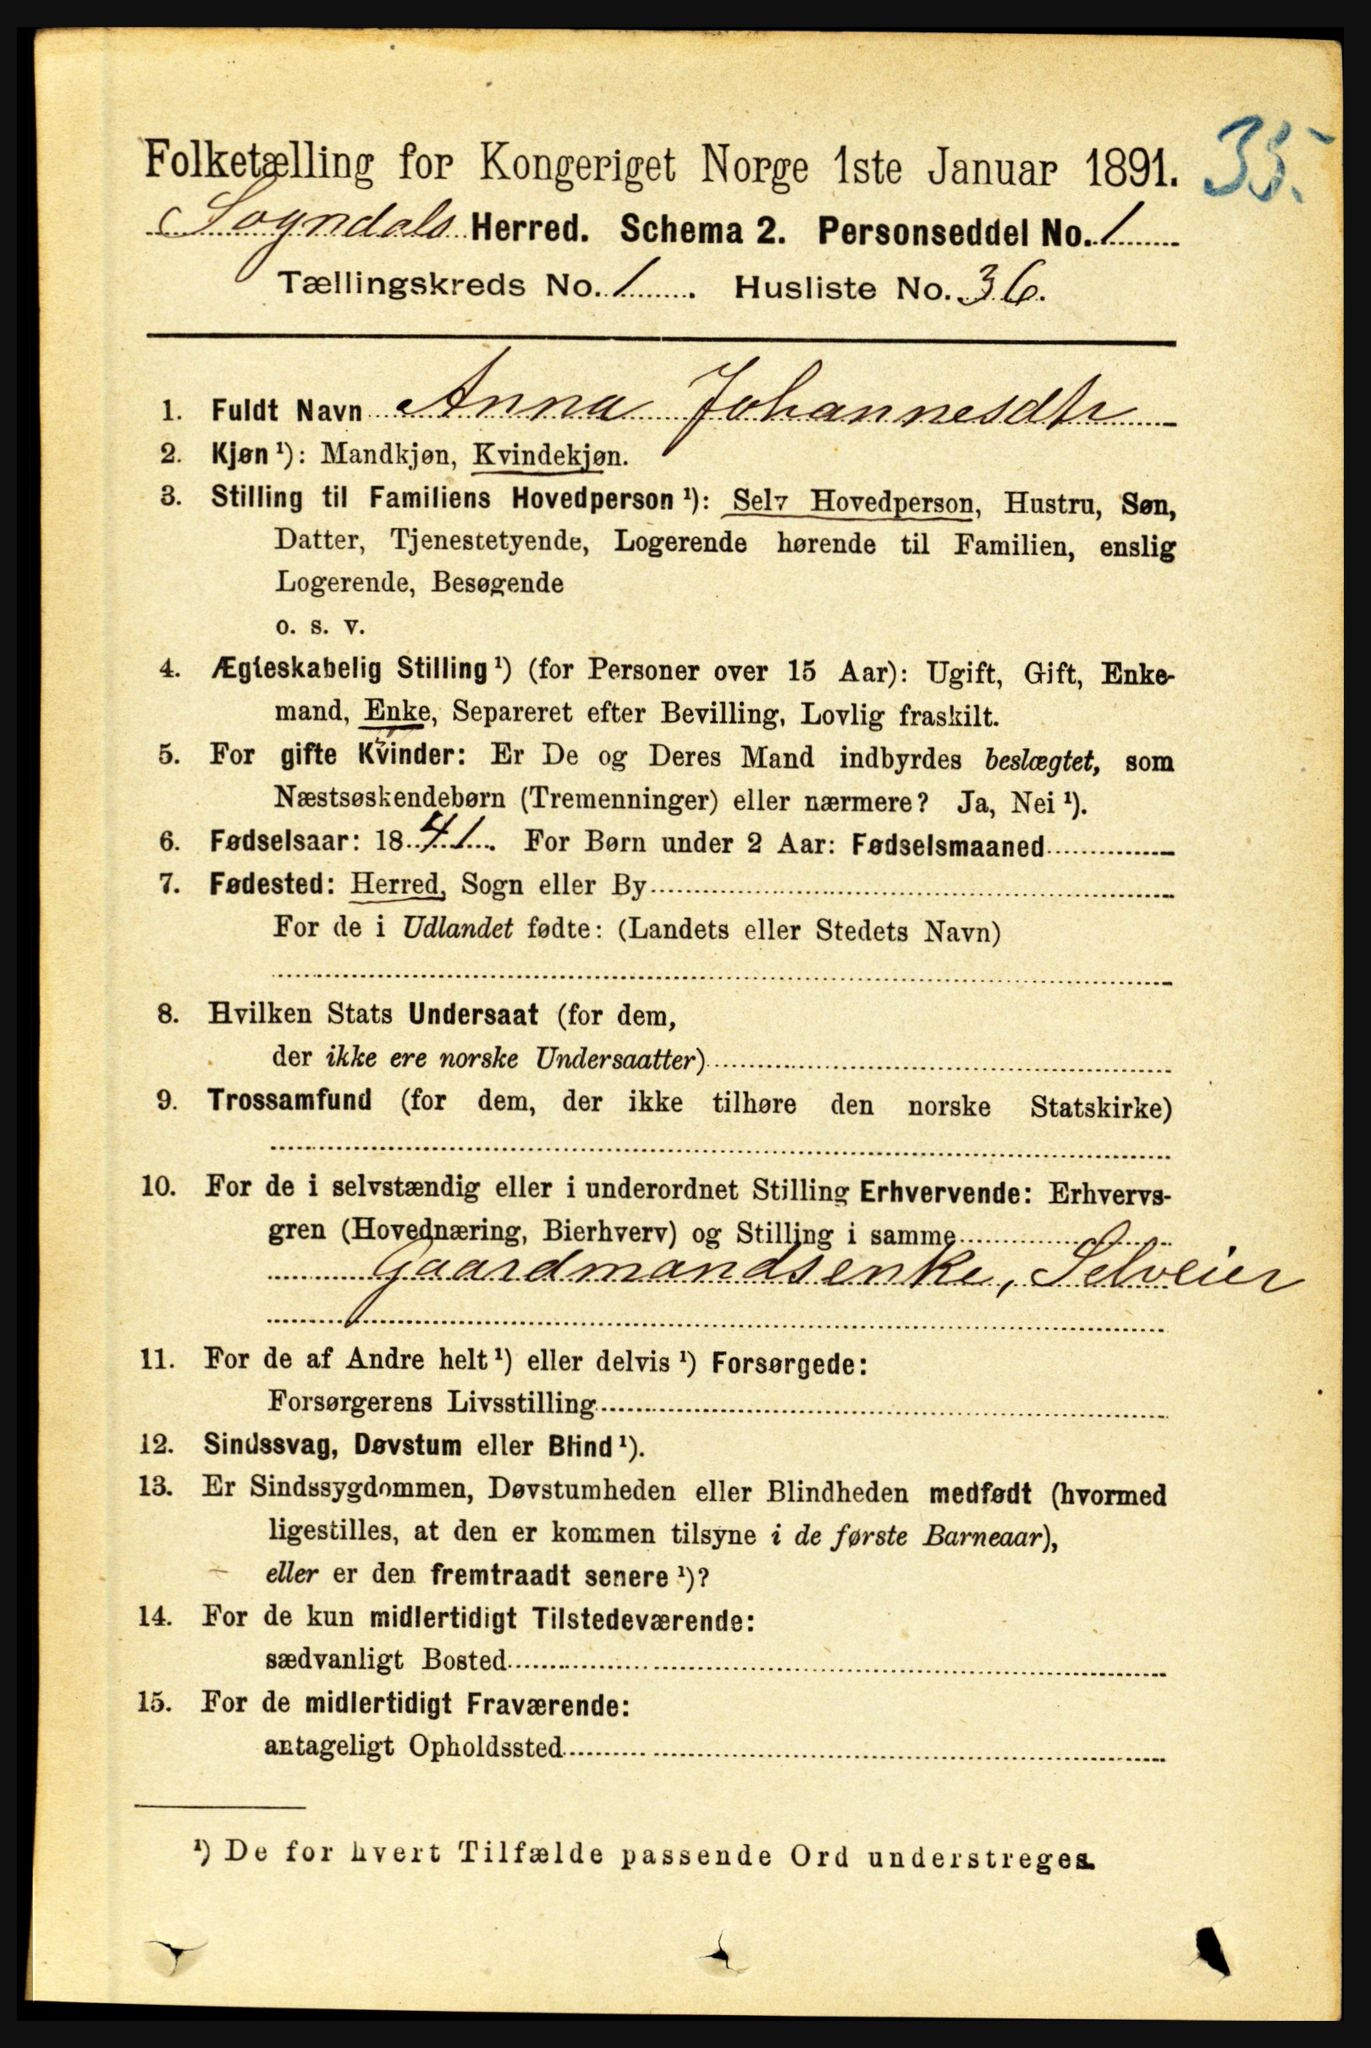 35.
Folketælling for Kongeriget Norge 1ste Januar 1891.
Sogndals Herred. Schema 2. Personseddel No. 1
Tællingskreds No. 1. Husliste No. 36.
1. Fuldt Navn Anna Johannesdtr
2. Kjøn ¹): Mandkjøn, Kvindekjøn.
3. Stilling til Familiens Hovedperson ¹): Selv Hovedperson, Hustru, Søn,
Datter, Tjenestetyende, Logerende hørende til Familien, enslig
Logerende, Besøgende
o. s. v.
4. Ægteskabelig Stilling ¹) (for Personer over 15 Aar): Ugift, Gift, Enke-
mand, Enke, Separeret efter Bevilling, Lovlig fraskilt.
5. For gifte Kvinder: Er De og Deres Mand indbyrdes beslægtet, som
Næstsøskendebørn (Tremenninger) eller nærmere? Ja, Nei ¹).
6. Fødselsaar: 1841. For Børn under 2 Aar: Fødselsmaaned
7. Fødested: Herred, Sogn eller By
For de i Udlandet fødte: (Landets eller Stedets Navn)
8. Hvilken Stats Undersaat (for dem,
der ikke ere norske Undersaatter)
9. Trossamfund (for dem, der ikke tilhøre den norske Statskirke)
10. For de i selvstændig eller i underordnet Stilling Erhvervende: Erhvervs-
gren (Hovednæring, Bierhverv) og Stilling i samme
Gaardmandsenke, Selveier
11. For de af Andre helt ¹) eller delvis ¹) Forsørgede:
Forsørgerens Livsstilling
12. Sindssvag, Døvstum eller Blind ¹).
13. Er Sindssygdommen, Døvstumheden eller Blindheden medfødt (hvormed
ligestilles, at den er kommen tilsyne i de første Barneaar),
eller er den fremtraadt senere ¹)?
14. For de kun midlertidigt Tilstedeværende:
sædvanligt Bosted
15. For de midlertidigt Fraværende:
antageligt Opholdssted
¹) De for hvert Tilfælde passende Ord understreges.